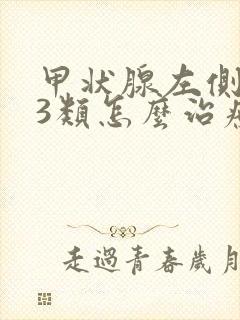 甲状腺左側
3類怎麼治
走過青春歲月